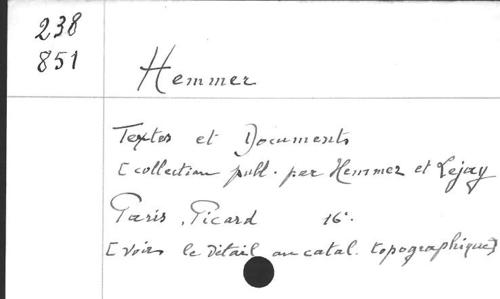 238
851
Hemmer
Textes et Documents
[collection publ. par Hemmer et Lejay
Paris, Picard 16°.
[voir le détail au catal. topographique]